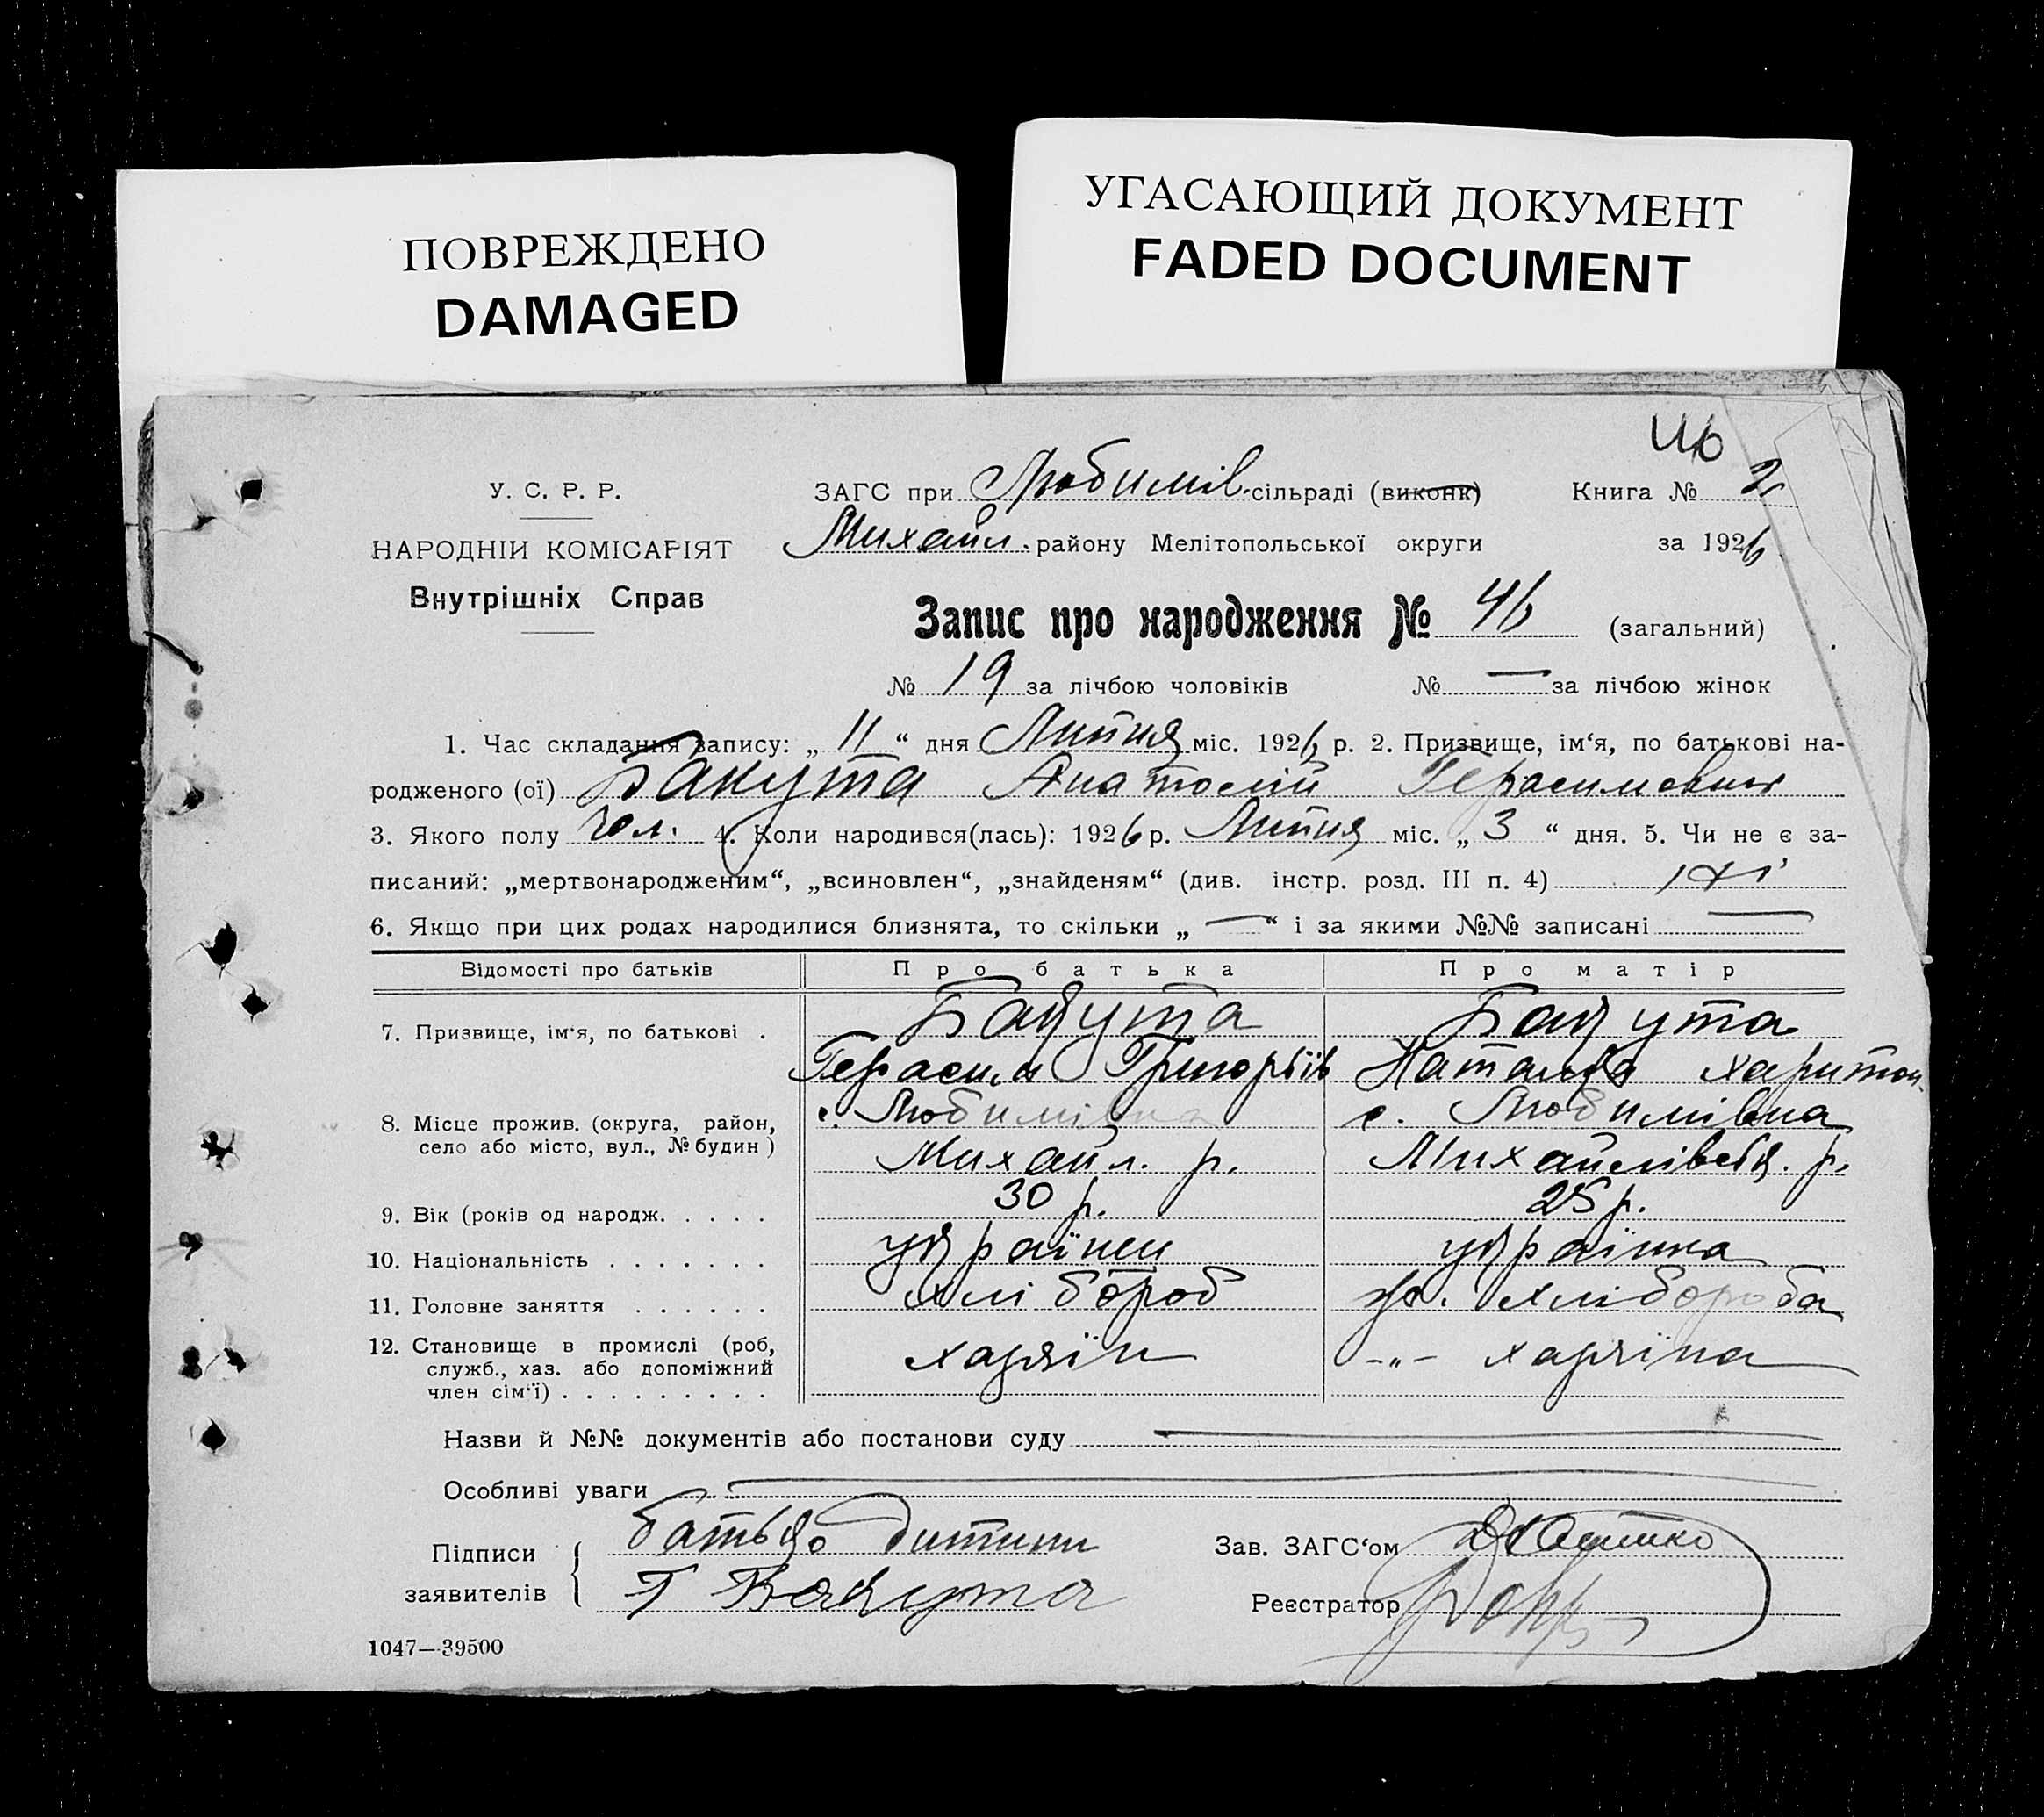 ПОВРЕЖДЕНО
DAMAGED
УГАСАЮЩИЙ ДОКУМЕНТ
FADED DOCUMENT
У. С. Р. Р.
НАРОДНІЙ КОМІСАРІЯТ
Внутрішніх Справ
ЗАГС при Любимів. сільраді (виконк) Книга № 2
Михайл. району Мелітопольської округи за 1926
Запис про народження № 46 (загальний)
№ 19 за лічбою чоловіків № — за лічбою жінок
1. Час складання запису: „ 11 “ дня Липня міс. 1926 р. 2. Призвище, ім‘я, по батькові на-
родженого (ої) Бакута Анатолій Герасимович
3. Якого полу чол. 4. Коли народився(лась): 1926 р. Липня міс. „ 3 “ дня. 5. Чи не є за-
писаний: „мертвонародженим“, „всиновлен“, „знайденям“ (див. інстр. розд. III п. 4) ні
6. Якщо при цих родах народилися близнята, то скільки „ — “ і за якими №№ записані —
Відомості про батьків Про батька Про матір
7. Призвище, ім‘я, по батькові . Бакута Бакута
Герасим Григоріїв Наталка Харитон.
8. Місце прожив. (округа, район, село або місто, вул., № будин) с. Любимівка с. Любимівка
Михайл. р. Михайлівськ. р.
9. Вік (років од народж. . . . . 30 р. 25 р.
10. Національність . . . . . . . українец українка
11. Головне заняття . . . . . . хлібороб ж. хлібороба
12. Становище в промислі (роб, служб., хаз. або допоміжний член сім‘ї) . . . . . . . . . хазяїн -„- хазяїна
Назви й №№ документів або постанови суду
Особливі уваги
Підписи заявителів батько дитини
Г Бакута
Зав. ЗАГС‘ом
Реєстратор
1047—39500